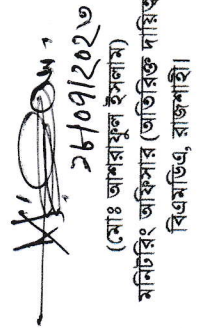 ২৮/০৭/২০২৩
(মোঃ আশরাফুল ইসলাম)
মনিটরিং অফিসার (অতিরিক্ত দায়িত্ব
বিএমডিএ, রাজশাহী।